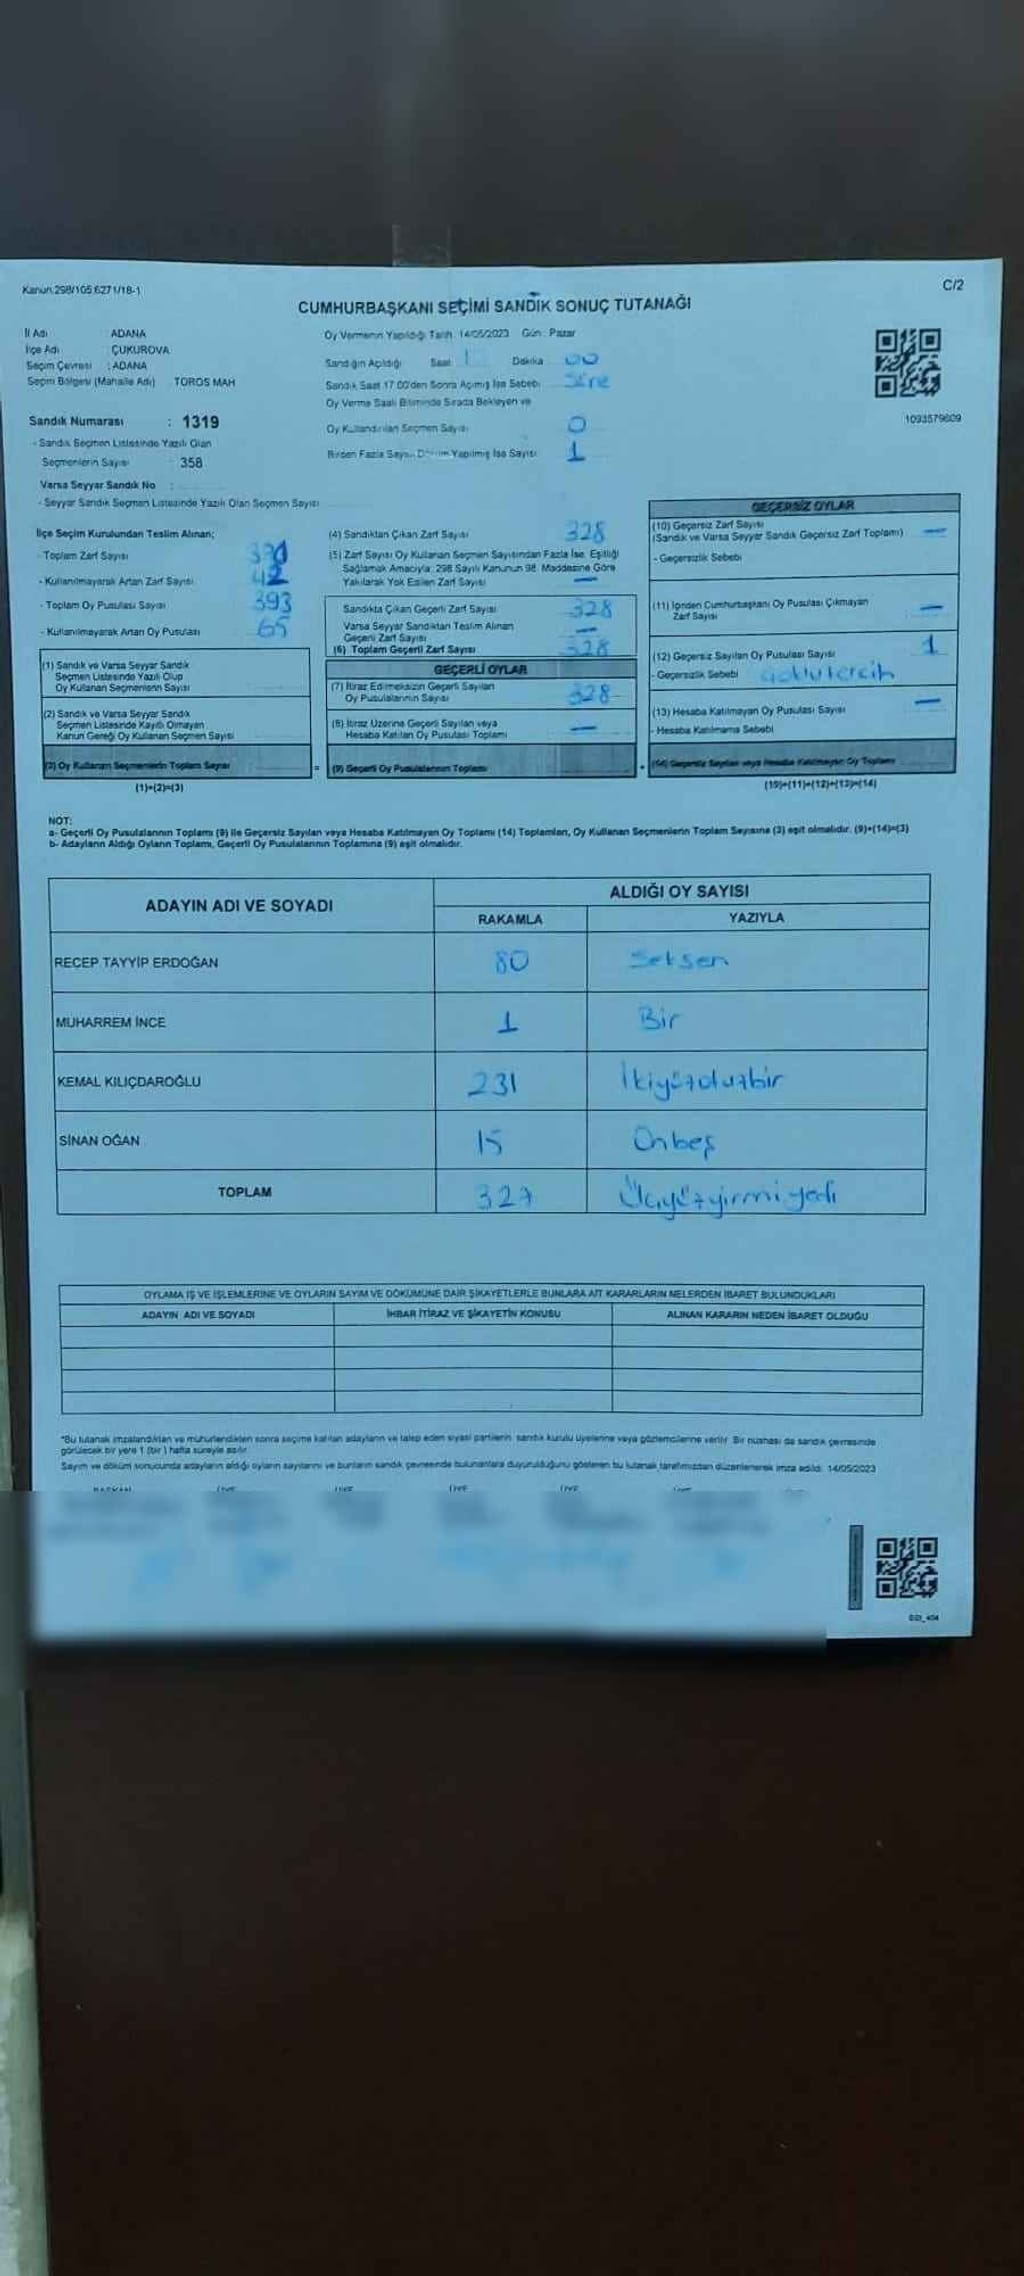 Kanun:298/105,6271/18-1
C/2
CUMHURBAŞKANI SEÇİMİ SANDIK SONUÇ TUTANAĞI
İl Adı ADANA
İlçe Adı ÇUKUROVA
Seçim Çevresi : ADANA
Seçim Bölgesi (Mahalle Adı) TOROS MAH
Sandık Numarası : 1319
- Sandık Seçmen Listesinde Yazılı Olan
Seçmenlerin Sayısı 358
Varsa Seyyar Sandık No :
- Seyyar Sandık Seçmen Listesinde Yazılı Olan Seçmen Sayısı
Oy Vermenin Yapıldığı Tarih: 14/05/2023 Gün: Pazar
Sandığın Açıldığı Saat Dakika 00
Sandık Saat 17.00'den Sonra Açılmış İse Sebebi Süre
Oy Verme Saati Bitiminde Sırada Bekleyen ve
Oy Kullandırılan Seçmen Sayısı 0
Birden Fazla Sayım Döküm Yapılmış İse Sayısı 1
1093579609
İlçe Seçim Kurulundan Teslim Alınan;
- Toplam Zarf Sayısı
- Kullanılmayarak Artan Zarf Sayısı 42
- Toplam Oy Pusulası Sayısı 393
- Kullanılmayarak Artan Oy Pusulası 65
(1) Sandık ve Varsa Seyyar Sandık
Seçmen Listesinde Yazılı Olup
Oy Kullanan Seçmenlerin Sayısı
(2) Sandık ve Varsa Seyyar Sandık
Seçmen Listesinde Kayıtlı Olmayan
Kanun Gereği Oy Kullanan Seçmen Sayısı
(3) Oy Kullanan Seçmenlerin Toplam Sayısı
(1)+(2)=(3)
(4) Sandıktan Çıkan Zarf Sayısı 328
(5) Zarf Sayısı Oy Kullanan Seçmen Sayısından Fazla İse, Eşitliği
Sağlamak Amacıyla; 298 Sayılı Kanunun 98. Maddesine Göre
Yakılarak Yok Edilen Zarf Sayısı —
Sandıkta Çıkan Geçerli Zarf Sayısı 328
Varsa Seyyar Sandıktan Teslim Alınan
Geçerli Zarf Sayısı —
(6) Toplam Geçerli Zarf Sayısı 328
GEÇERLİ OYLAR
(7) İtiraz Edilmeksizin Geçerli Sayılan
Oy Pusulalarının Sayısı 328
(8) İtiraz Üzerine Geçerli Sayılan veya
Hesaba Katılan Oy Pusulası Toplamı —
= (9) Geçerli Oy Pusulalarının Toplamı
GEÇERSİZ OYLAR
(10) Geçersiz Zarf Sayısı
(Sandık ve Varsa Seyyar Sandık Geçersiz Zarf Toplamı) —
- Geçersizlik Sebebi
(11) İçinden Cumhurbaşkanı Oy Pusulası Çıkmayan
Zarf Sayısı —
(12) Geçersiz Sayılan Oy Pusulası Sayısı 1
- Geçersizlik Sebebi
(13) Hesaba Katılmayan Oy Pusulası Sayısı —
- Hesaba Katılmama Sebebi
+ (14) Geçersiz Sayılan veya Hesaba Katılmayan Oy Toplamı
(10)+(11)+(12)+(13)=(14)
NOT:
a- Geçerli Oy Pusulalarının Toplamı (9) ile Geçersiz Sayılan veya Hesaba Katılmayan Oy Toplamı (14) Toplamları, Oy Kullanan Seçmenlerin Toplam Sayısına (3) eşit olmalıdır. (9)+(14)=(3)
b- Adayların Aldığı Oyların Toplamı, Geçerli Oy Pusulalarının Toplamına (9) eşit olmalıdır.
ADAYIN ADI VE SOYADI ALDIĞI OY SAYISI
RAKAMLA YAZIYLA
RECEP TAYYİP ERDOĞAN 80 Seksen
MUHARREM İNCE 1 Bir
KEMAL KILIÇDAROĞLU 231 İkiyüzotuzbir
SİNAN OĞAN 15 Onbeş
TOPLAM 327 Üçyüzyirmiyedi
OYLAMA İŞ VE İŞLEMLERİNE VE OYLARIN SAYIM VE DÖKÜMÜNE DAİR ŞİKAYETLERLE BUNLARA AİT KARARLARIN NELERDEN İBARET BULUNDUKLARI
ADAYIN ADI VE SOYADI İHBAR İTİRAZ VE ŞİKAYETİN KONUSU ALINAN KARARIN NEDEN İBARET OLDUĞU
*Bu tutanak imzalandıktan ve mühürlendikten sonra seçime katılan adayların ve talep eden siyasi partilerin sandık kurulu üyelerine veya gözlemcilerine verilir. Bir nüshası da sandık çevresinde
görülecek bir yere 1 (bir) hafta süreyle asılır.
Sayım ve döküm sonucunda adayların aldığı oyların sayılarını ve bunların sandık çevresinde bulunanlara duyurulduğunu gösteren bu tutanak tarafımızdan düzenlenerek imza edildi. 14/05/2023
BAŞKAN ÜYE ÜYE ÜYE ÜYE ÜYE